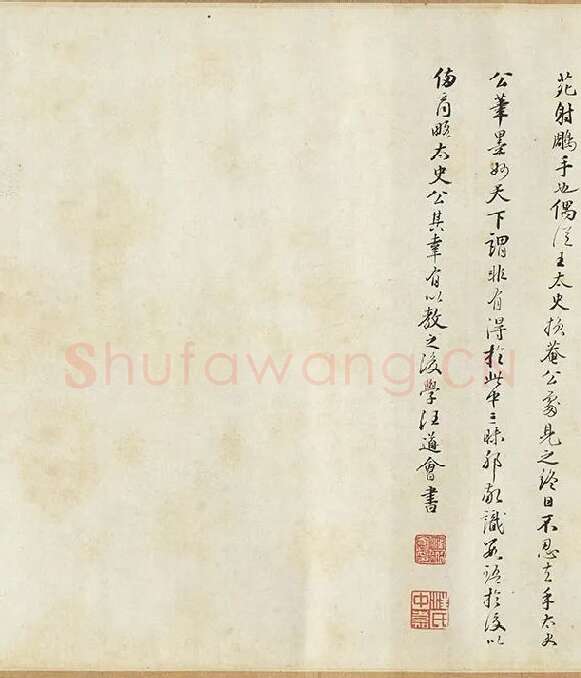 苑射鵰手也偶從王太史損菴公處見之終日不忍去手太史
公筆墨妙天下謂非有得於此中三昧邪敢識數語於後以
備商略太史公其幸有以教之後學汪道會書
Shufawang.CN